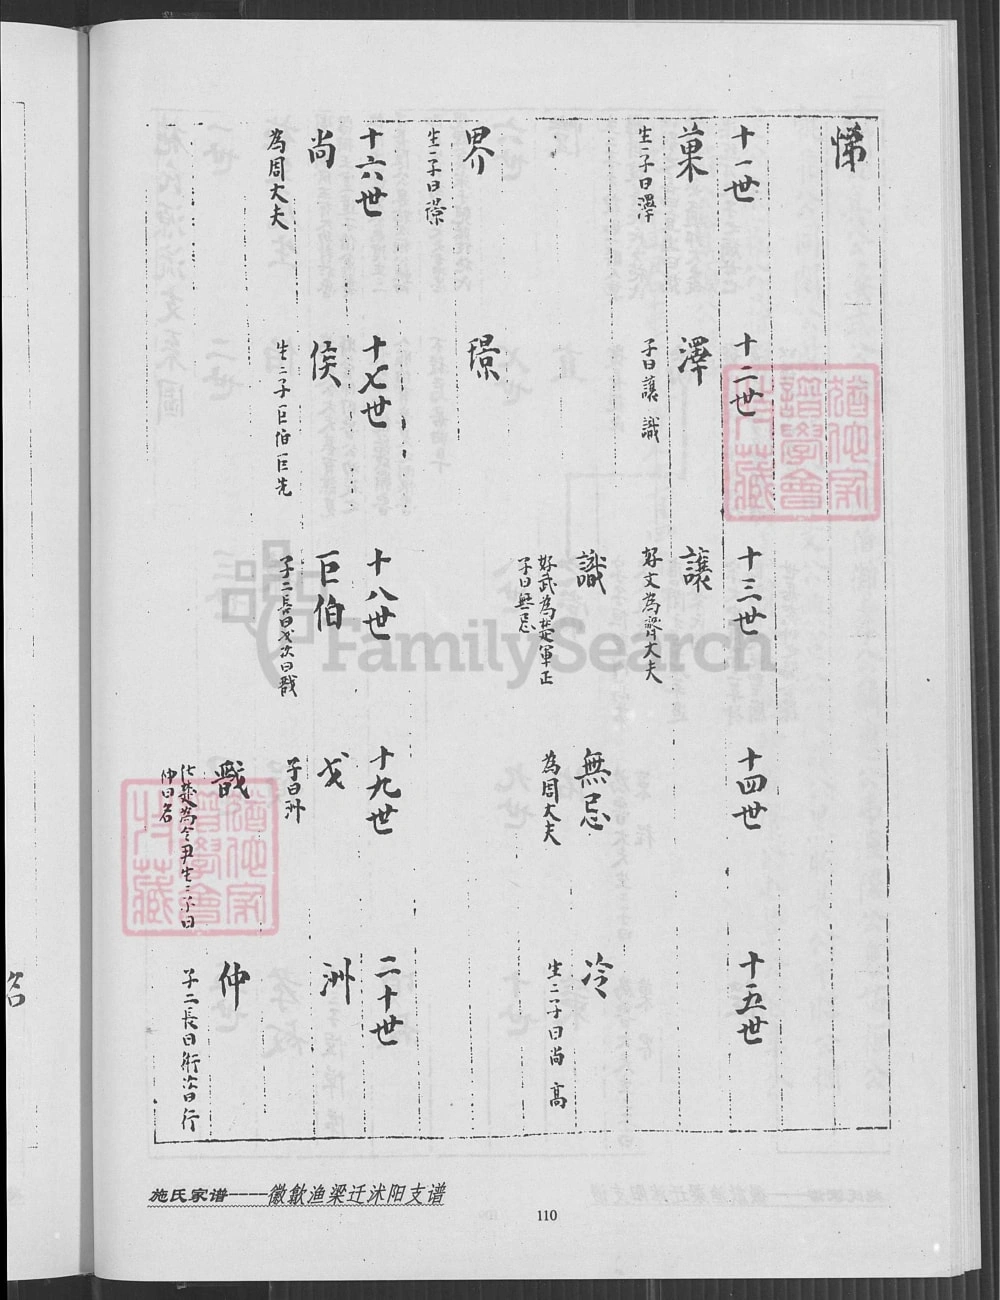 悌
十一世
菓
生一子曰澤
十二世
澤
子曰讓 識
十三世
讓
好文為齊大夫
識
好武為楚軍正
子曰無忌
十四世
無忌
為周大夫
十五世
冷
生二子曰尚 高
界
生一子曰璟
璟
十六世
尚
為周大夫
十七世
侯
生二子巨伯巨先
十八世
巨伯
子二長曰戈次曰戩
十九世
戈
子曰洲
戩
仕楚為令尹生二子曰
仲曰名
二十世
洲
仲
子二長曰術次曰行
名
施氏家谱----徽歙渔梁迁沭阳支谱
110
FamilySearch